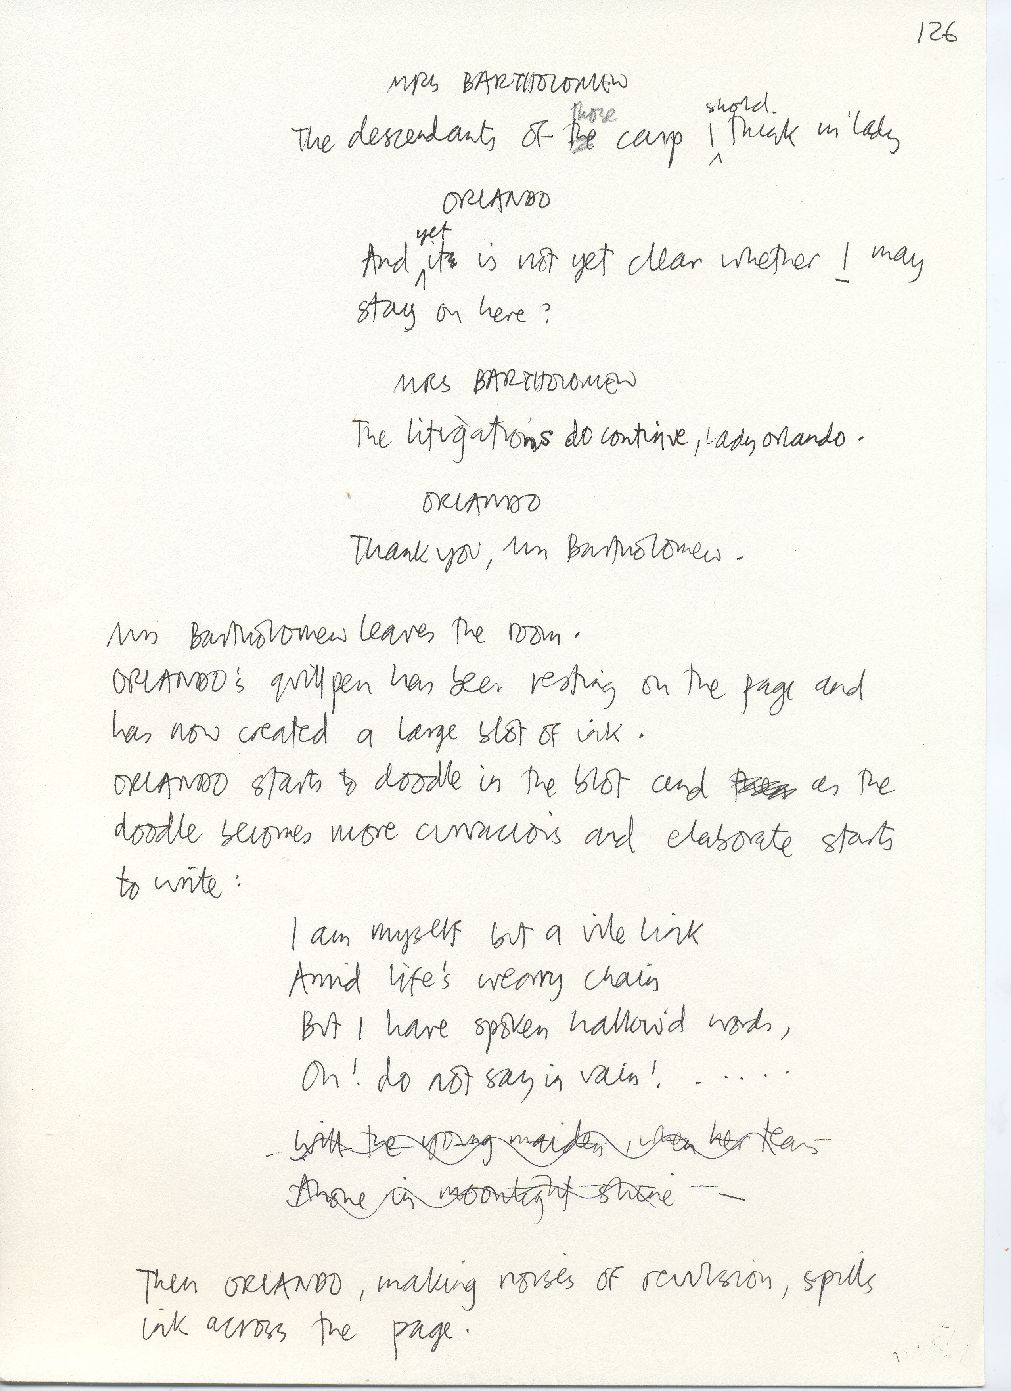 126
MRS BARTHOLOMEW
those
shold.
The descendants of the carp I think m'lady
ORLANDO
yet
And it is not yet clear whether I may
stay on here?
MRS BARTHOLOMEW
The litigations do continue, Lady Orlando.
ORLANDO
Thank you, Mrs Bartholomew.
Mrs Bartholomew leaves the room.
ORLANDO's quill pen has been resting on the page and
has now created a large blot of ink.
ORLANDO starts to doodle in the blot and as the
doodle becomes more curvacious and elaborate starts
to write:
I am myself but a vile link
Amid life's weary chain
But I have spoken hallow'd words,
Oh! do not say in vain! . . . . .
Will the young maiden, when her tears
Alone in moonlight shine —
Then ORLANDO, making noises of revulsion, spills
ink across the page.